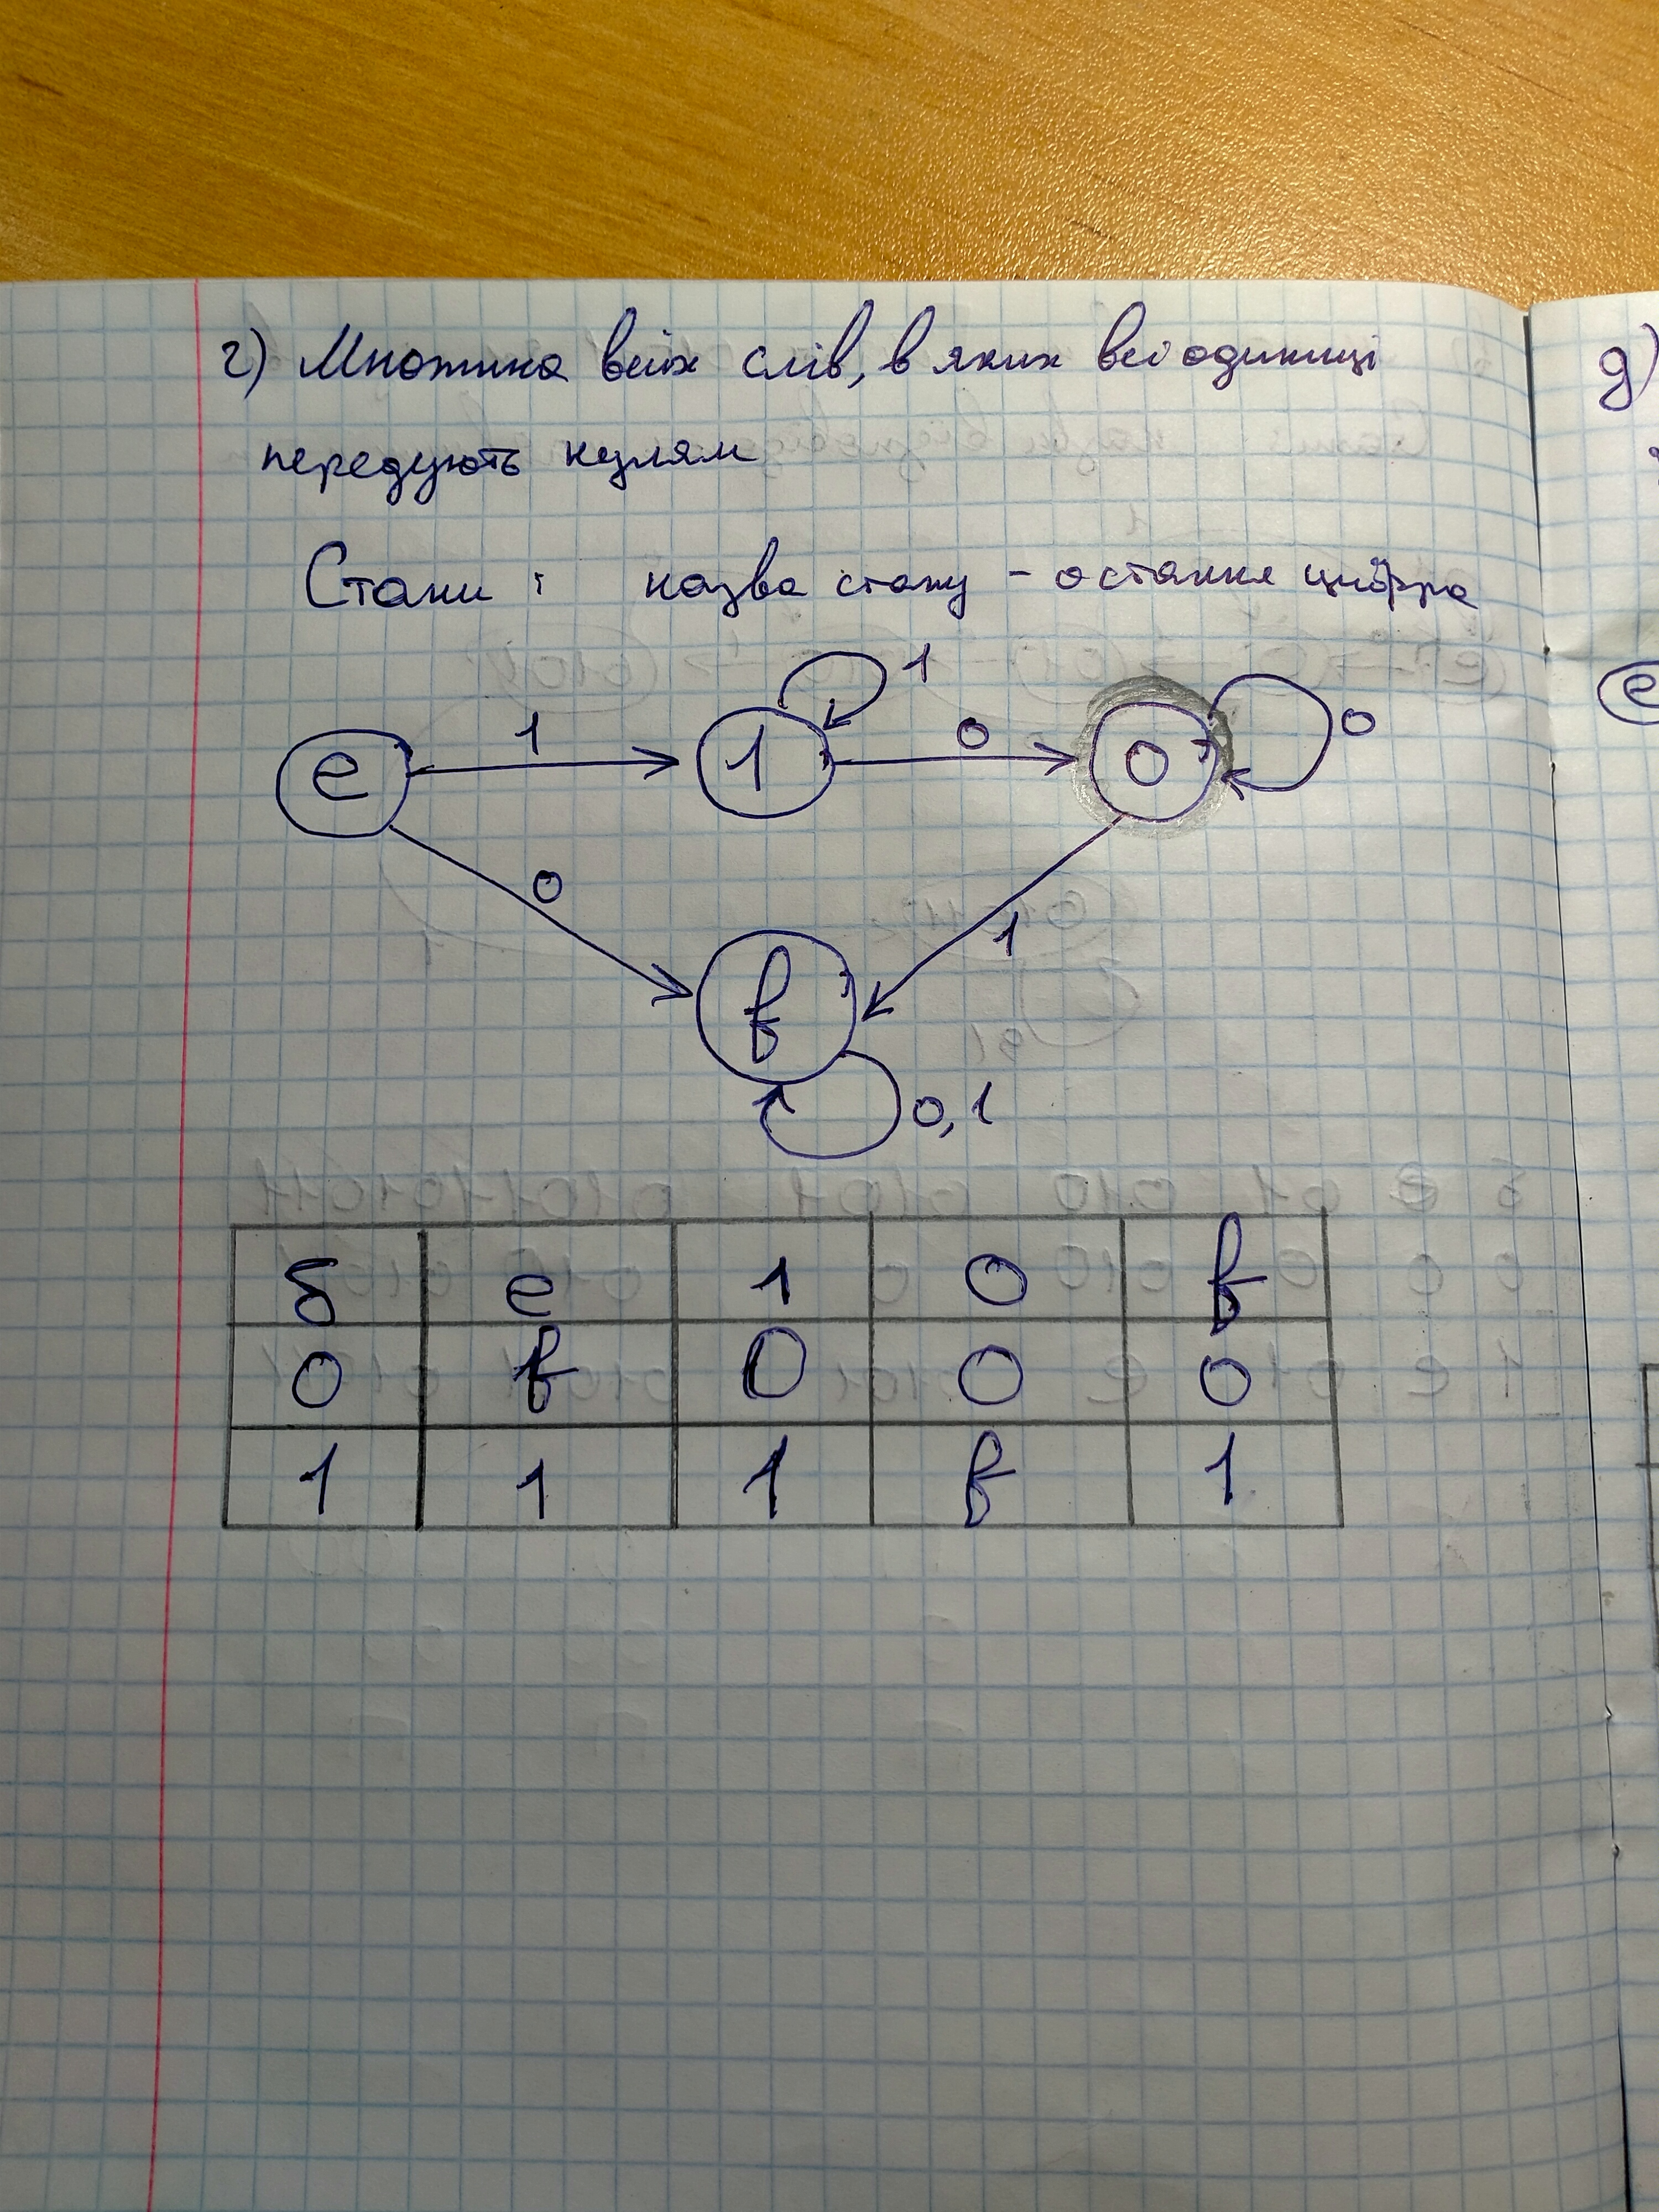 г) Множина всіх слів, в яких всі одиниці
передують нулям
Стани: назва стану - остання цифра
e 1 1 1 0 0 0
0 1
f
0,1
δ e 1 0 f
0 f 0 0 0
1 1 1 f 1
д)
e